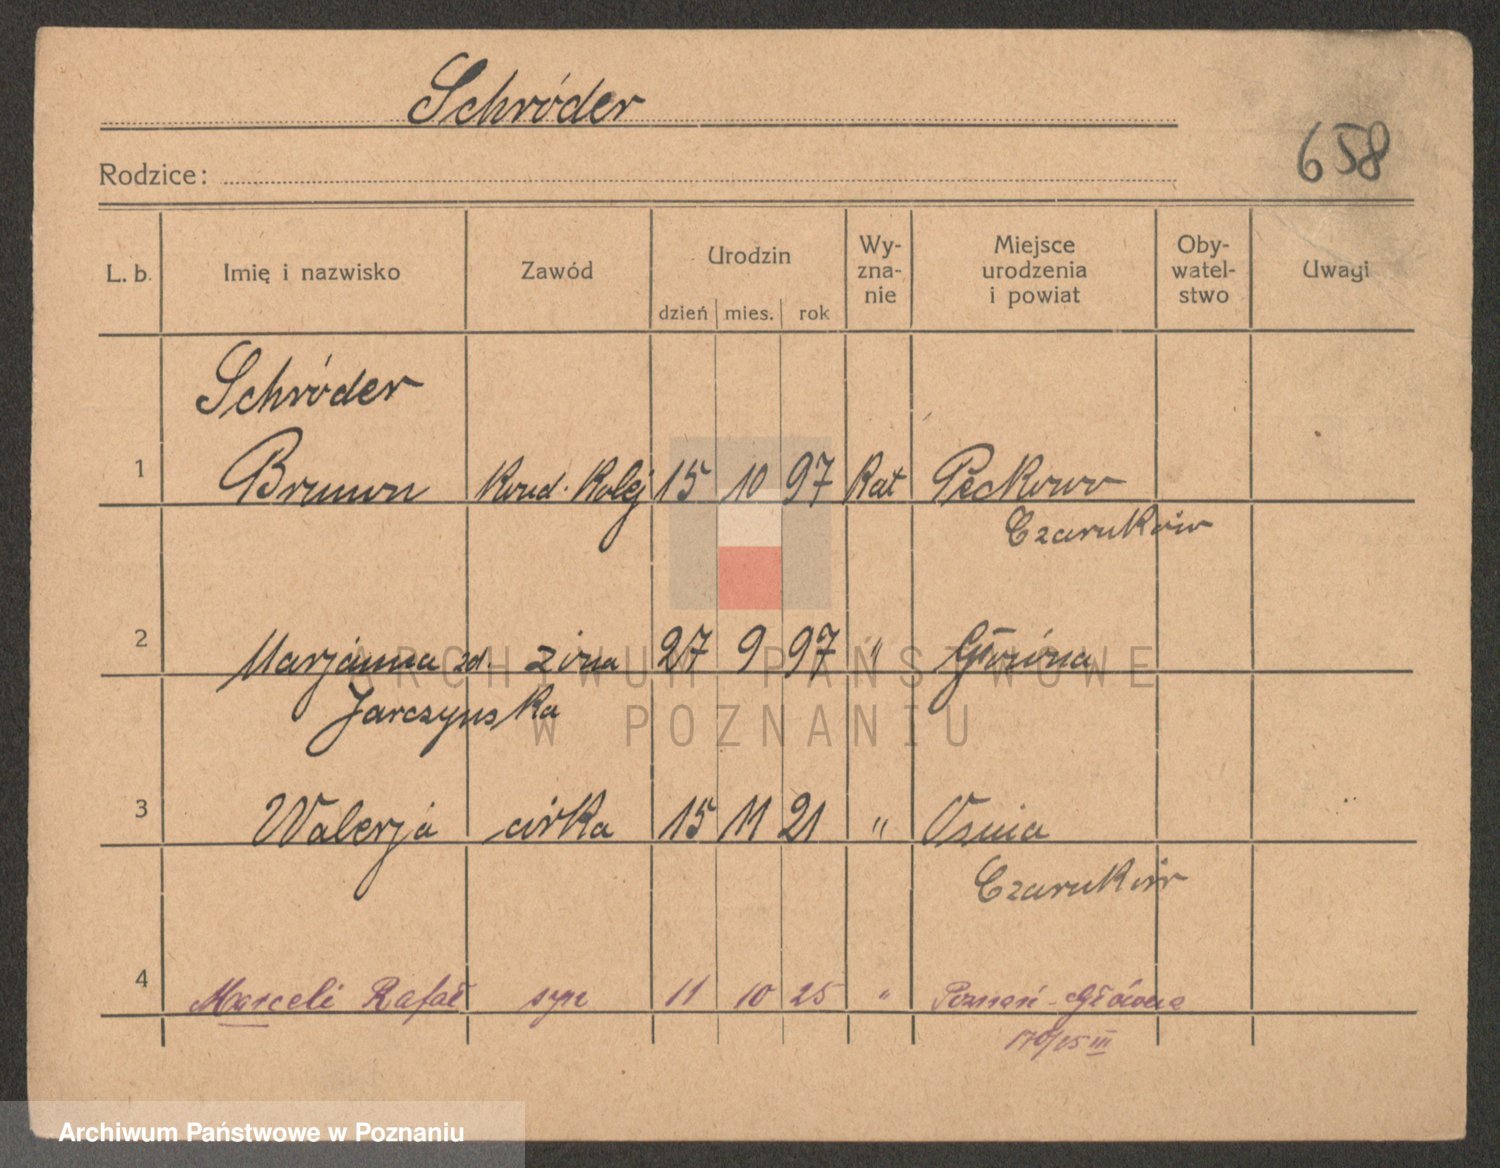 Schróder
658
Rodzice:
L. b. Imię i nazwisko Zawód Urodzin dzień mies. rok Wy-zna-nie Miejsce urodzenia i powiat Oby-watel-stwo Uwagi
Schróder
1 Brunon Kond. Kolej 15 10 97 Kat Peckowo
Czarnków
2 Marjanna zd. żona 27 9 97 " Główna
Jarczynska
3 Walerja córka 15 11 21 "
Czarnków
4 Marceli Rafał syn 11 10 25 " Poznań-Główna
III
ARCHIWUM PAŃSTWOWE
W POZNANIU
Archiwum Państwowe w Poznaniu